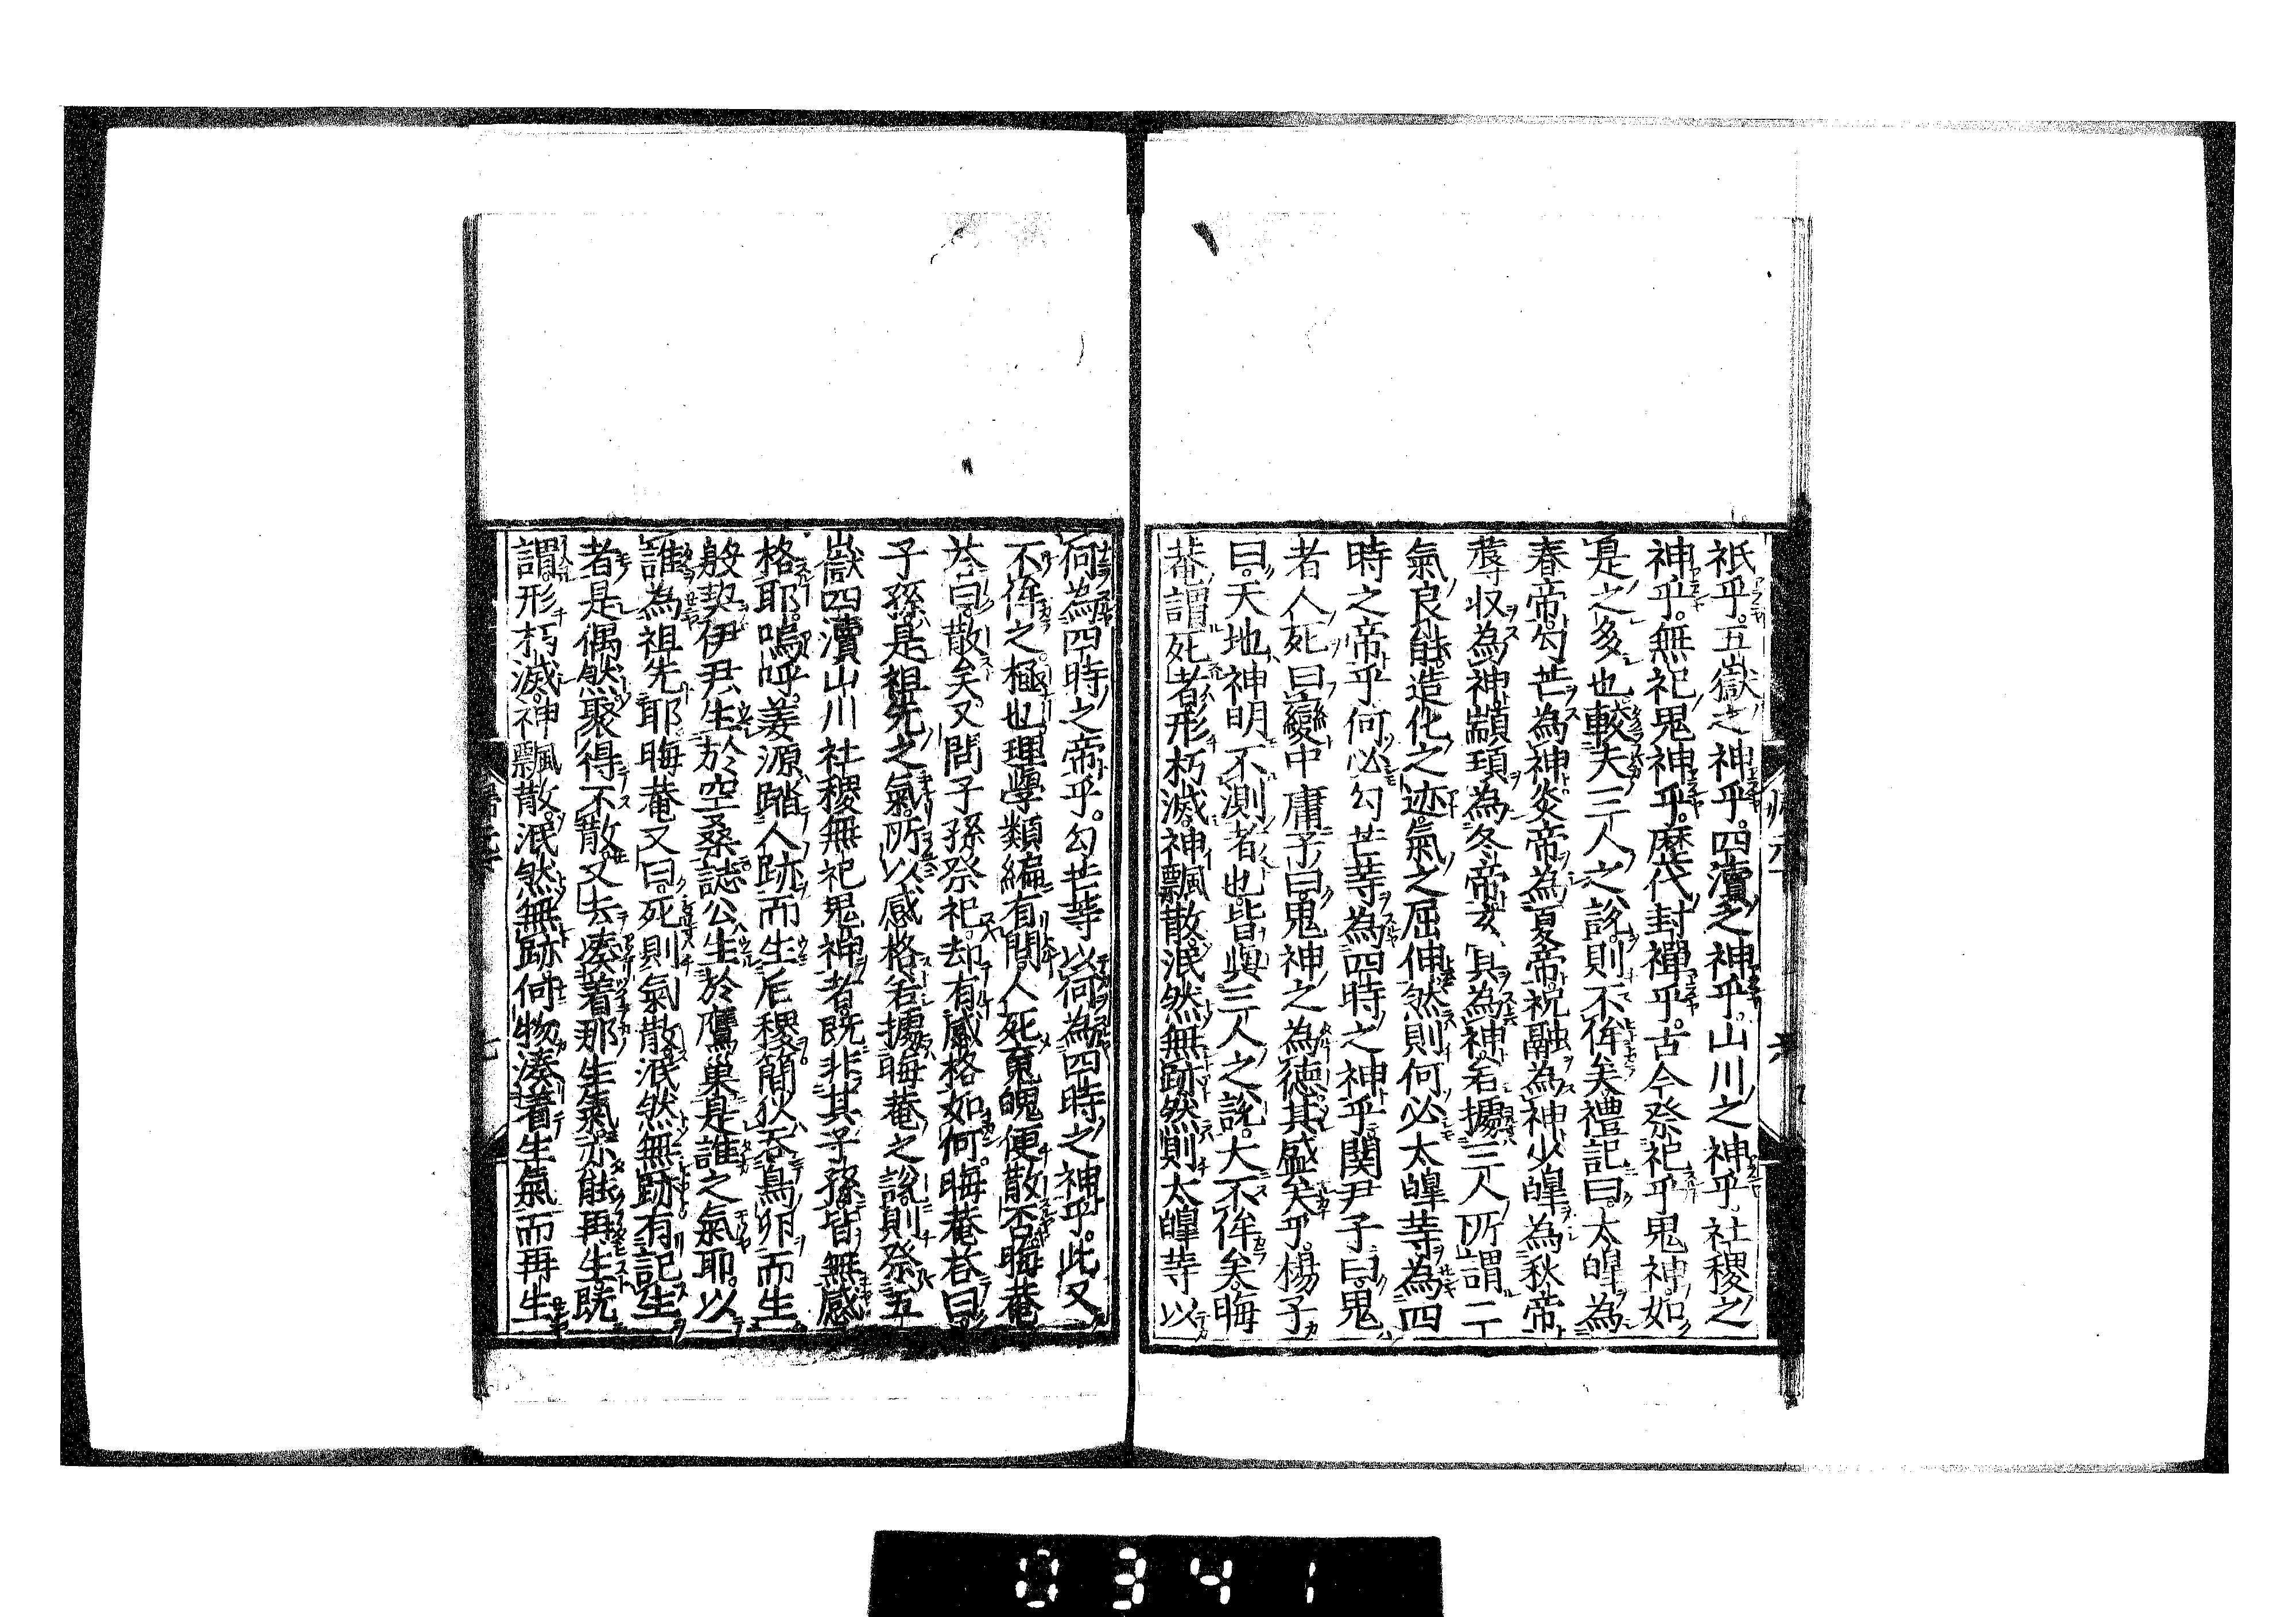 祇乎。五嶽之神乎。四瀆之神乎。山川之神乎。社稷之
神乎。無祀鬼神乎。歷代封禪乎。古今祭祀乎鬼神如
是之多也較夫三人之說。則不侔矣。禮記曰。太皥為
春帝。勾芒為神炎帝為夏帝。祝融為神少皥為秋帝
蓐收為神。顓頊為冬帝玄冥為神。若據三人所謂二
氣良能。造化之迹。氣之屈伸然則何必太皥等為四
時之帝乎何必勾芒等為四時之神乎関尹子曰。鬼
者人死曰變中庸子曰。鬼神之為德其盛矣乎。楊子
曰。天地神明不測者也。皆與三人之說。大不侔矣。晦
菴謂死者形朽滅。神飄散。泯然無跡然則太皥等以
何為四時之帝乎。勾芒等以何為四時之神乎。此又
不侔之極也。理學類編有問。人死䰟魄便散否晦菴
荅曰。散矣。又問子孫祭祀。却有感格如何。晦菴荅曰
子孫是祖先之氣。所以感格。若據晦菴之說。則祭五
嶽四瀆山川社稷無祀鬼神者。既非其子孫。皆無感
格耶。嗚呼。姜源踏人跡而生后稷。簡狄吞鳥卵而生
殷契伊尹生於空桑。誌公生於鷹巢。是誰之氣耶。以
誰為祖先耶晦菴又曰。死則氣散。泯然無跡有記生
者是偶然聚得不散。又去湊着那生氣。亦能再生。既
謂形朽滅。神飄散。泯然無跡何物湊着生氣而再生
0341